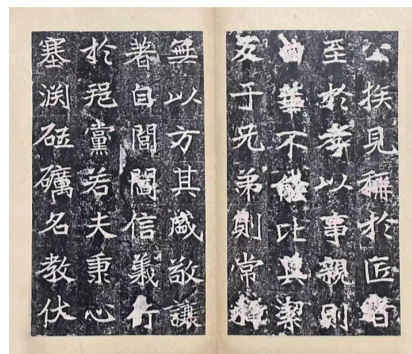 公族見稱於匠者
至於孝以事親則
華不能比其潔
友于兄弟則常棣
無以方其盛敬讓
著自閨信義行
於邑黨若夫秉心
塞淵砥礪名教伏